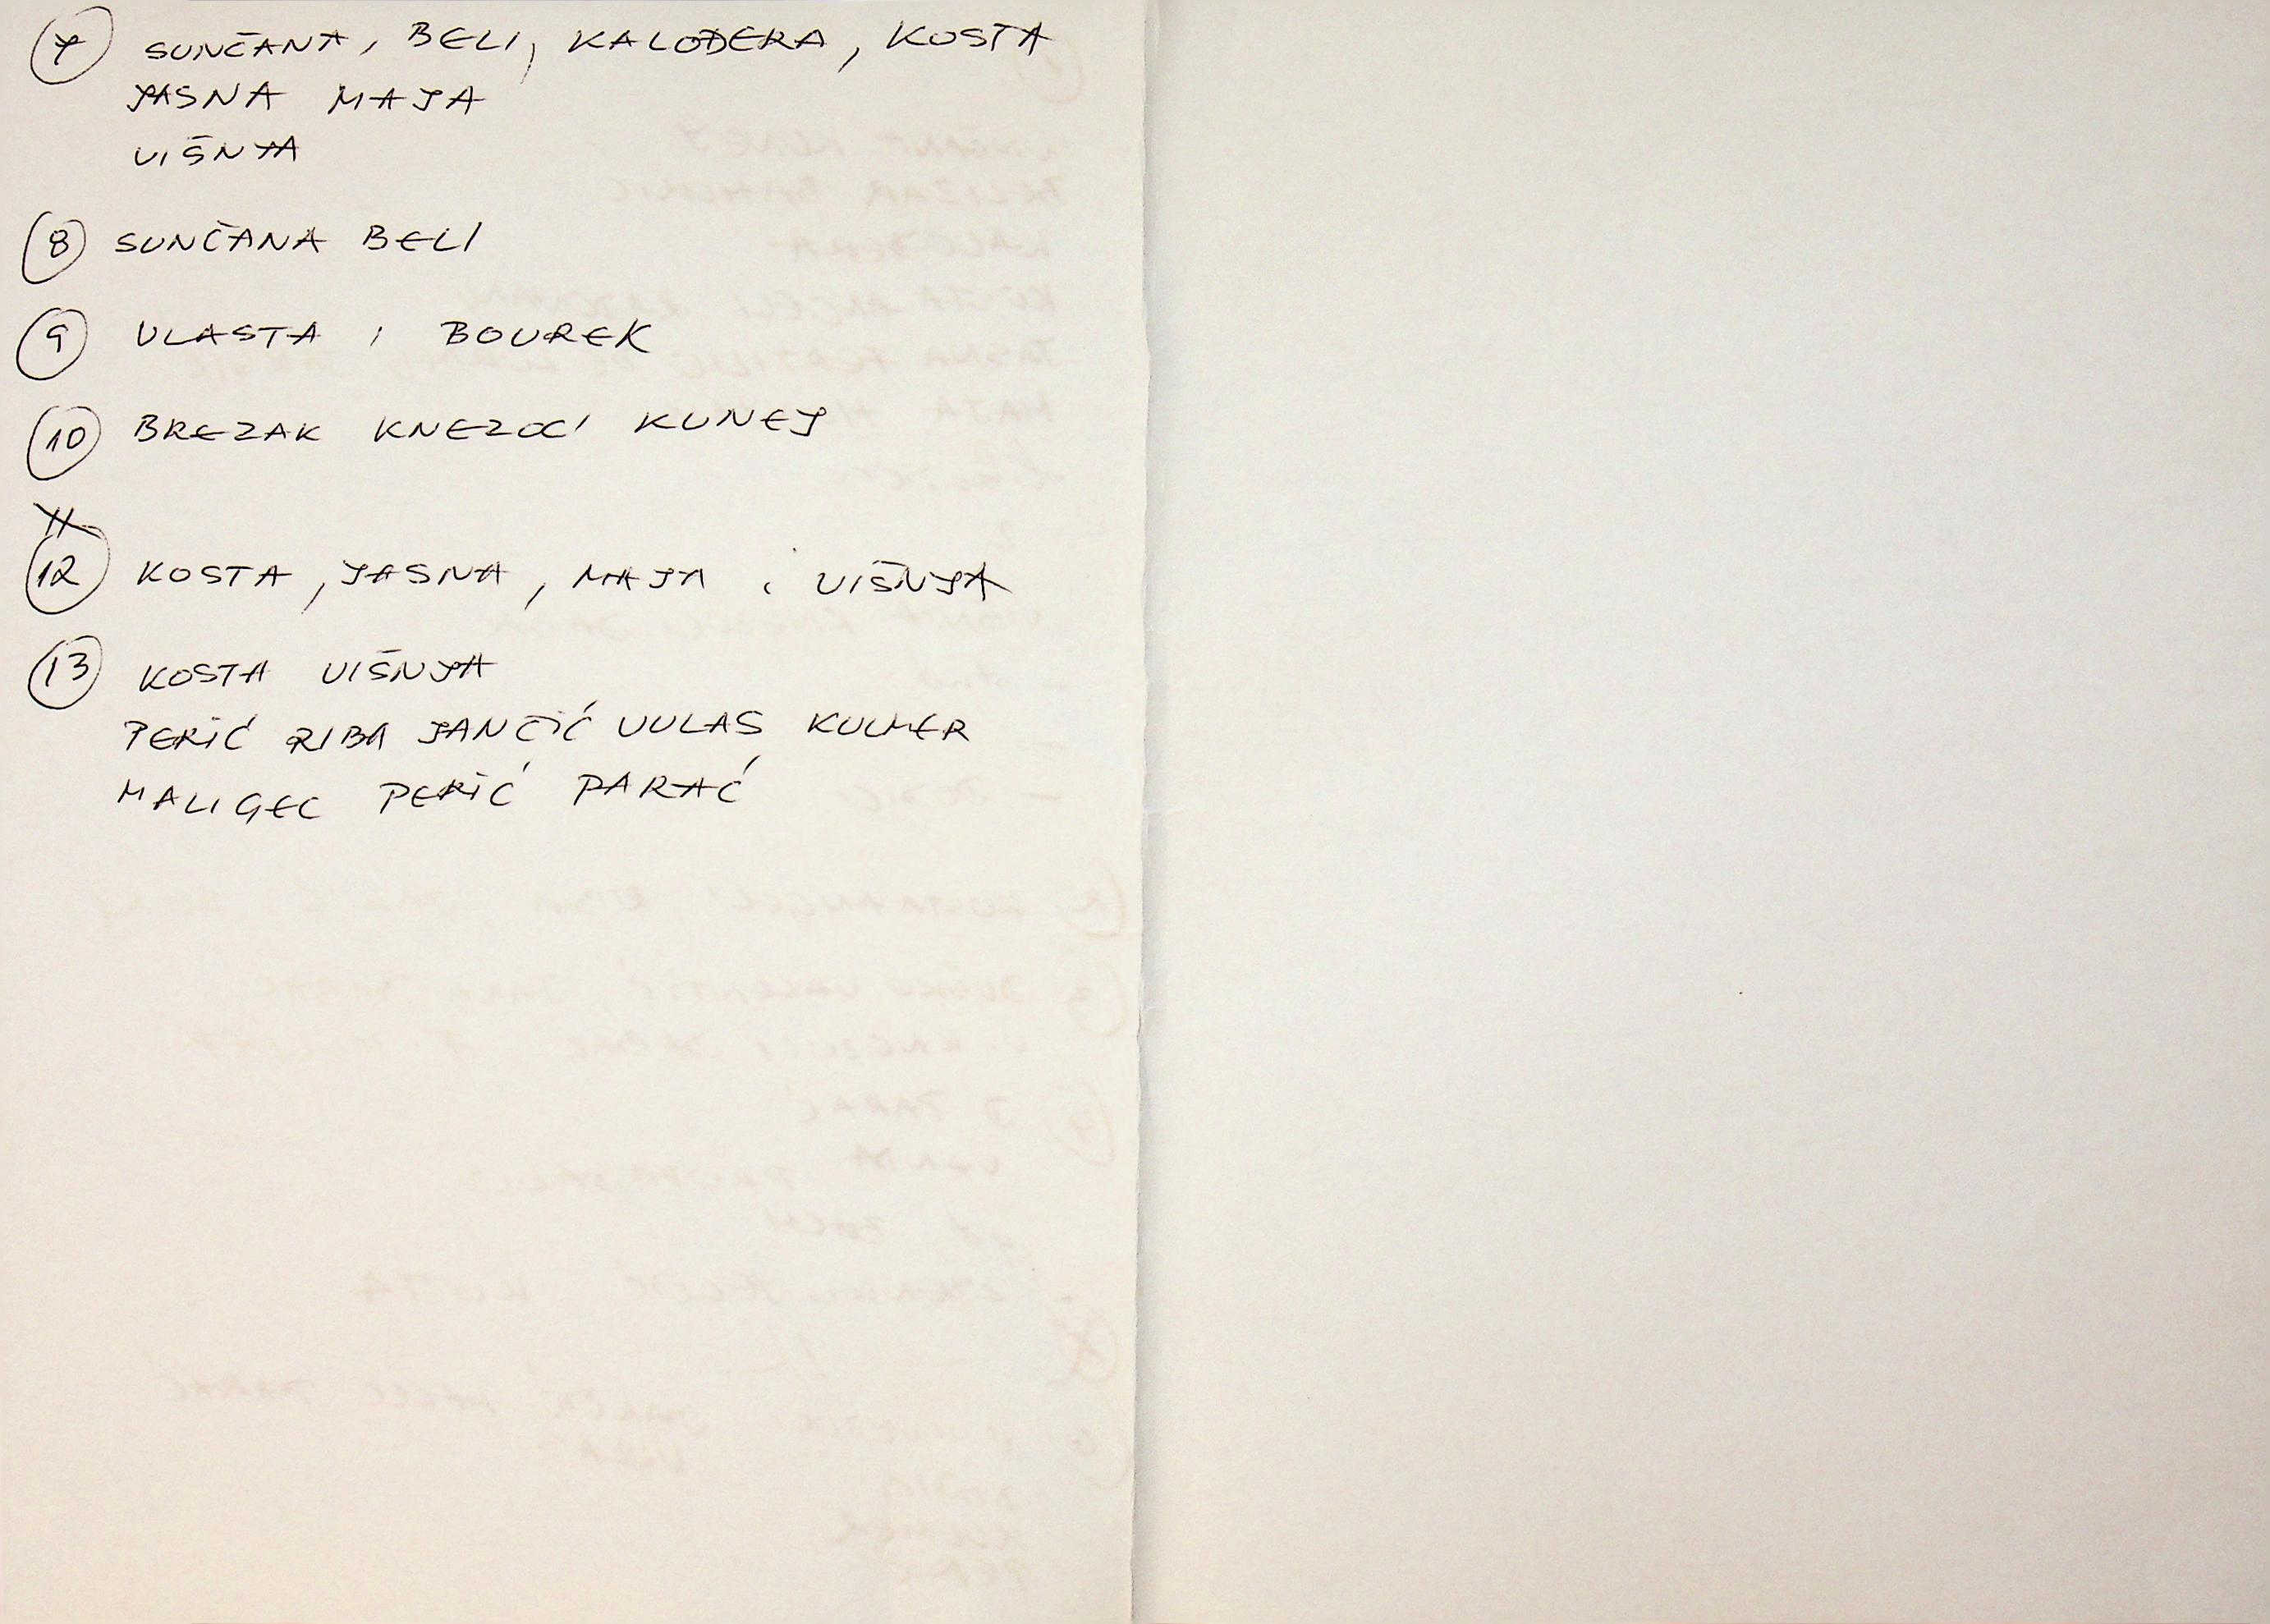 7 SUNČANA, BELI, KALOĐERA, KOSTA
JASNA MAJA
VIŠNJA
8 SUNČANA BELI
9 VLASTA I BOUREK
10 BREZAK KUNEJ
11
12 KOSTA, JASNA, MAJA i VIŠNJA
13 KOSTA VIŠNJA
PERIĆ RIBA JANČIĆ VULAS KULMER
MALIGEC PERIĆ PARAĆ